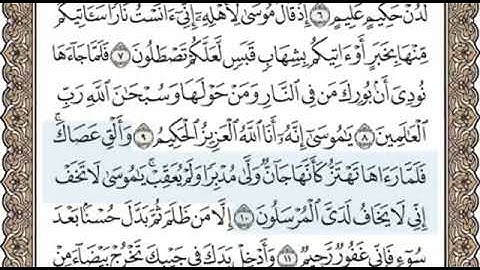 لَّدُنْ حَكِيمٍ عَلِيمٍ ٦ إِذْ قَالَ مُوسَىٰ لِأَهْلِهِۦٓ إِنِّىٓ ءَانَسْتُ نَارًا سَـَٔاتِيكُم
مِّنْهَا بِخَبَرٍ أَوْ ءَاتِيكُم بِشِهَابٍ قَبَسٍ لَّعَلَّكُمْ تَصْطَلُونَ ٧ فَلَمَّا جَآءَهَا
نُودِىَ أَنۢ بُورِكَ مَن فِى ٱلنَّارِ وَمَنْ حَوْلَهَا وَسُبْحَـٰنَ ٱللَّهِ رَبِّ
ٱلْعَـٰلَمِينَ ٨ يَـٰمُوسَىٰٓ إِنَّهُۥٓ أَنَا ٱللَّهُ ٱلْعَزِيزُ ٱلْحَكِيمُ ٩ وَأَلْقِ عَصَاكَ ۚ
فَلَمَّا رَءَاهَا تَهْتَزُّ كَأَنَّهَا جَآنٌّ وَلَّىٰ مُدْبِرًا وَلَمْ يُعَقِّبْ ۚ يَـٰمُوسَىٰ لَا تَخَفْ
إِنِّى لَا يَخَافُ لَدَىَّ ٱلْمُرْسَلُونَ ١٠ إِلَّا مَن ظَلَمَ ثُمَّ بَدَّلَ حُسْنًۢا بَعْدَ
سُوٓءٍ فَإِنِّى غَفُورٌ رَّحِيمٌ ١١ وَأَدْخِلْ يَدَكَ فِى جَيْبِكَ تَخْرُجْ بَيْضَآءَ مِنْ